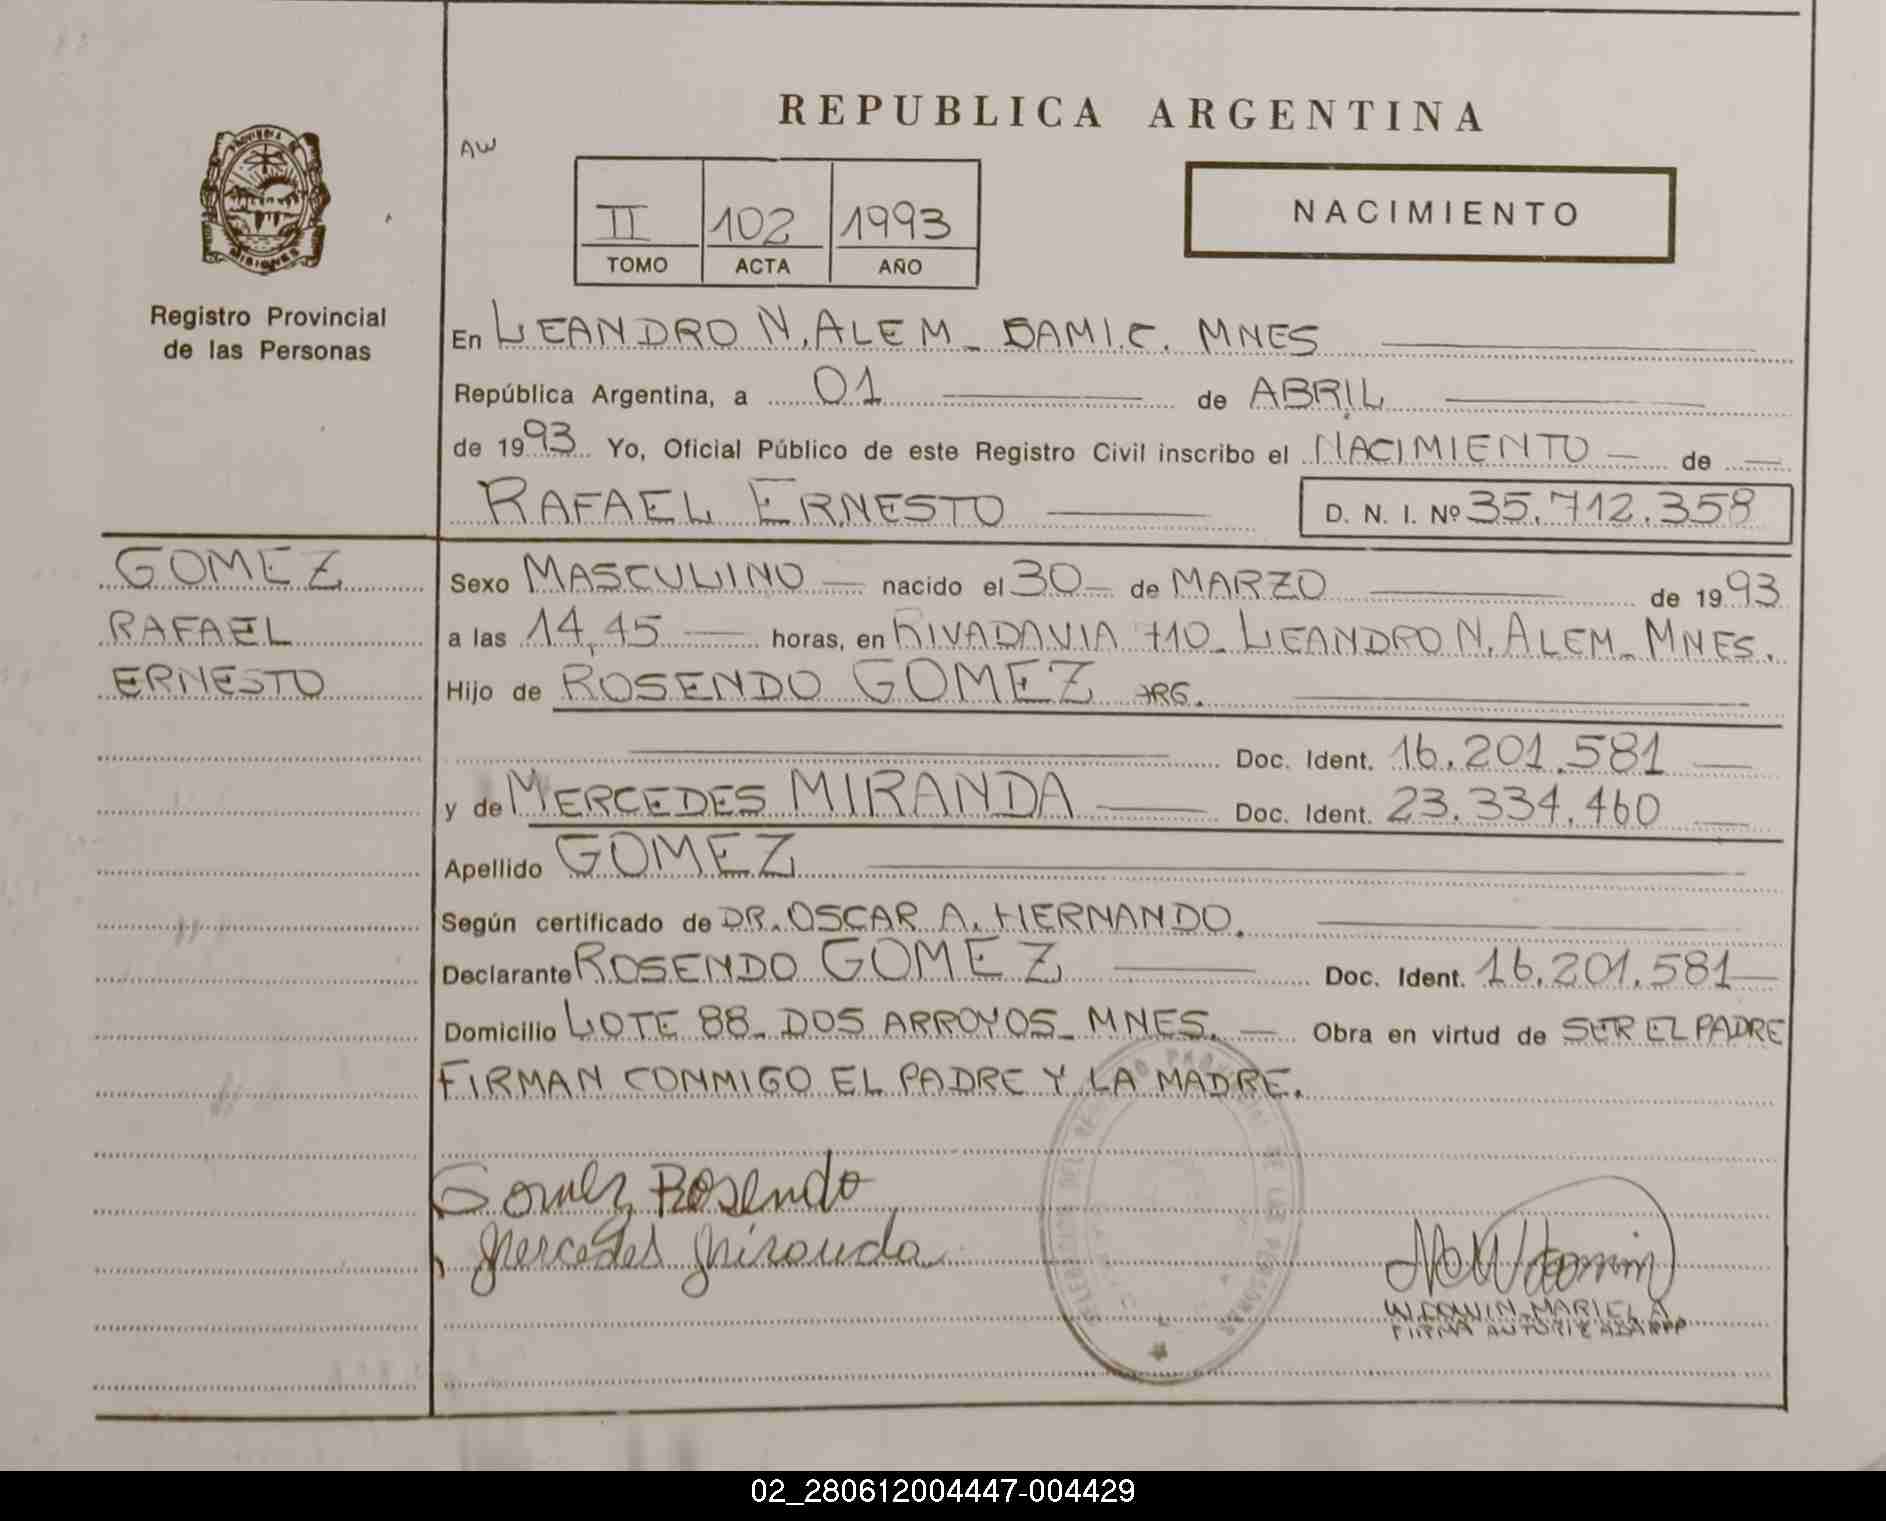 REPUBLICA ARGENTINA
AW
PROVINCIA
MISIONES
II 102 1993
TOMO ACTA AÑO
NACIMIENTO
Registro Provincial
de las Personas
En LEANDRO N. ALEM - MNES
República Argentina, a 01 de ABRIL
de 1993 Yo, Oficial Público de este Registro Civil inscribo el NACIMIENTO de
RAFAEL ERNESTO D. N. I. Nº 35.712.358
GOMEZ
RAFAEL
ERNESTO
Sexo MASCULINO nacido el 30 de MARZO de 1993
a las 14,45 horas, en RIVADAVIA 710 - LEANDRO N. ALEM - MNES.
Hijo de ROSENDO GOMEZ ARG.
Doc. Ident. 16.201.581
y de MERCEDES MIRANDA Doc. Ident. 23.334.460
Apellido GOMEZ
Según certificado de DR. OSCAR A. HERNANDO.
Declarante ROSENDO GOMEZ Doc. Ident. 16.201.581
Domicilio LOTE 88 - DOS ARROYOS - MNES. Obra en virtud de SER EL PADRE
FIRMAN CONMIGO EL PADRE Y LA MADRE.
Gomez Rosendo
Mercedes Miranda
MARIELA
FIRMA AUTORIZADA RPP
02_280612004447-004429